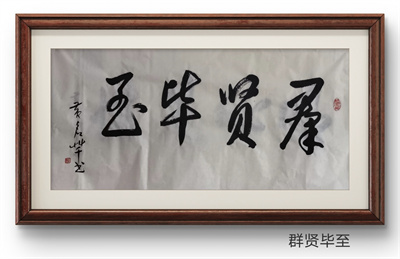 羣贤毕至
群贤毕至